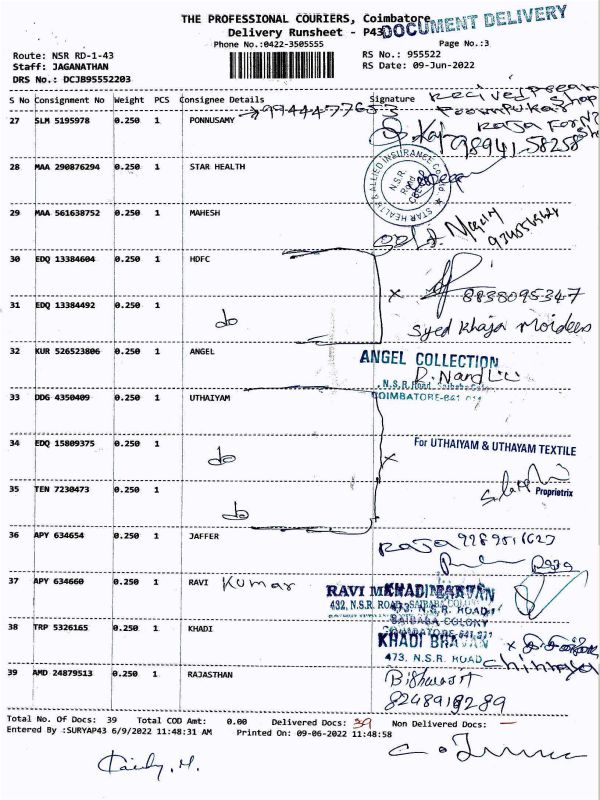 THE PROFESSIONAL COURIERS, Coimbatore
DOCUMENT DELIVERY
Delivery Runsheet - P43
Phone No.:0422-3505555
Page No.:3
Route: NSR RD-1-43
RS No.: 955522
Staff: JAGANATHAN
RS Date: 09-Jun-2022
DRS No.: DCJB95552203
S No Consignment No Weight PCS Consignee Details Signature
27 SLM 5195978 0.250 1 PONNUSAMY
28 MAA 290876294 0.250 1 STAR HEALTH
STAR HEALTH & ALLIED INSURANCE Co Ltd.
N.S.R. Road
29 MAA 561638752 0.250 1 MAHESH
30 EDQ 13384604 0.250 1 HDFC
8838095347
31 EDQ 13384492 0.250 1 do
Syed Khaja Moideen
32 KUR 526523806 0.250 1 ANGEL
ANGEL COLLECTION
N.S.R. Road, Saibaba Colony
COIMBATORE-641 011
33 DDG 4350409 0.250 1 UTHAIYAM
34 EDQ 15809375 0.250 1 do
For UTHAIYAM & UTHAYAM TEXTILE
35 TEN 7230473 0.250 1 do
Proprietrix
36 APY 634654 0.250 1 JAFFER
Raja
37 APY 634660 0.250 1 RAVI Kumar
RAVI
432, N.S.R. ROAD, SAIBABA COLONY
473, N.S.R. ROAD
SAIBABA COLONY
COIMBATORE-641 011
38 TRP 5326165 0.250 1 KHADI
KHADI BHAVAN
473, N.S.R. ROAD
39 AMD 24879513 0.250 1 RAJASTHAN
8248919289
Total No. Of Docs: 39 Total COD Amt: 0.00 Delivered Docs: 39 Non Delivered Docs: —
Entered By :SURYAP43 6/9/2022 11:48:31 AM Printed On: 09-06-2022 11:48:58